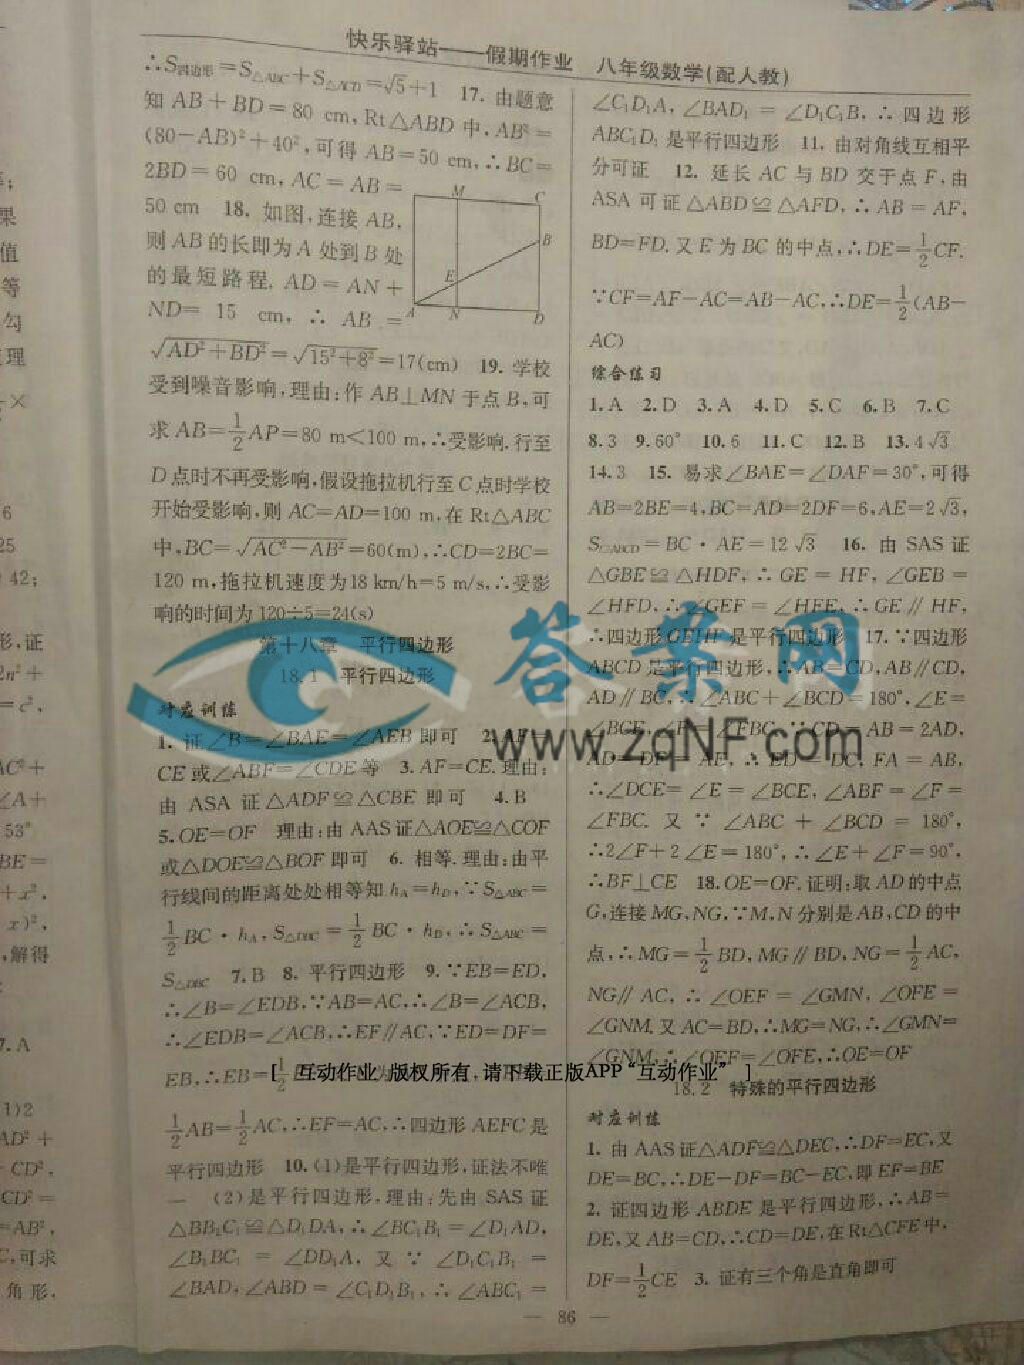 快乐驿站——假期作业 八年级数学(配人教)
∴S四边形=S△ABC+S△ACD=√5+1 17. 由题意
知 AB+BD=80 cm,Rt△ABD 中,AB²=
(80-AB)²+40²,可得 AB=50 cm,∴BC=
2BD=60 cm,AC=AB=
50 cm 18. 如图,连接 AB,
则 AB 的长即为 A 处到 B 处
的最短路程. AD=AN+
ND=15 cm,∴AB=
√AD²+BD²=√15²+8²=17(cm) 19. 学校
受到噪音影响,理由:作 AB⊥MN 于点 B,可
求 AB=1/2AP=80 m<100 m,∴受影响.行至
D 点时不再受影响,假设拖拉机行至 C 点时学校
开始受影响,则 AC=AD=100 m,在 Rt△ABC
中,BC=√AC²-AB²=60(m),∴CD=2BC=
120 m,拖拉机速度为18 km/h=5 m/s,∴受影
响的时间为120÷5=24(s)
M
C
B
E
A
N
D
第十八章 平行四边形
18.1 平行四边形
对应训练
1. 证∠B=∠BAE=∠AEB 即可 2. AF=
CE 或∠ABF=∠CDE 等 3. AF=CE. 理由:
由 ASA 证△ADF≌△CBE 即可 4. B
5. OE=OF 理由:由 AAS 证△AOE≌△COF
或△DOE≌△BOF 即可 6. 相等. 理由:由平
行线间的距离处处相等知 hA=hD,∵S△ABC=
1/2BC·hA,S△DBC=1/2BC·hD,∴S△ABC=
S△DBC 7. B 8. 平行四边形 9. ∵EB=ED,
∴∠B=∠EDB,∵AB=AC,∴∠B=∠ACB,
∴∠EDB=∠ACB,∴EF∥AC,∵ED=DF=
EB,∴EB=1/2
1/2AB=1/2AC,∴EF=AC,∴四边形 AEFC 是
平行四边形 10. (1)是平行四边形,证法不唯
一 (2)是平行四边形,理由:先由 SAS 证
△BB₁C₁≌△D₁DA,∴∠BC₁B₁=∠D₁AD,
∠B₁BC₁=∠DD₁A,又∵∠D₁C₁B₁=
∠BAD,∠ABD=∠C₁D₁B₁,∴∠ABC₁=
∠C₁D₁A,∠BAD₁=∠D₁C₁B,∴四边形
ABC₁D₁ 是平行四边形 11. 由对角线互相平
分可证 12. 延长 AC 与 BD 交于点 F,由
ASA 可证△ABD≌△AFD,∴AB=AF,
BD=FD. 又 E 为 BC 的中点,∴DE=1/2CF.
∵CF=AF-AC=AB-AC,∴DE=1/2(AB-
AC)
综合练习
1. A 2. D 3. A 4. D 5. C 6. B 7. C
8. 3 9. 60° 10. 6 11. C 12. B 13. 4√3
14. 3 15. 易求∠BAE=∠DAF=30°,可得
AB=2BE=4,BC=AD=2DF=6,AE=2√3,
S▱ABCD=BC·AE=12√3 16. 由 SAS 证
△GBE≌△HDF,∴GE=HF,∠GEB=
∠HFD,∴∠GEF=∠HFE,∴GE∥HF,
∴四边形 GEHF 是平行四边形 17. ∵四边形
ABCD 是平行四边形,∴AB=CD,AB∥CD,
AD∥BC,∴∠ABC+∠BCD=180°,∠E=
∠BCE,∠F=∠EBC,∵CD=AB=2AD,
AD=DE=AF,∴ED=DC,FA=AB,
∴∠DCE=∠E=∠BCE,∠ABF=∠F=
∠FBC. 又∵∠ABC+∠BCD=180°,
∴2∠F+2∠E=180°,∴∠E+∠F=90°,
∴BF⊥CE 18. OE=OF. 证明:取 AD 的中点
G,连接 MG,NG,∵M,N 分别是 AB,CD 的中
点,∴MG=1/2BD,MG∥BD,NG=1/2AC,
NG∥AC,∴∠OEF=∠GMN,∠OFE=
∠GNM. 又 AC=BD,∴MG=NG,∴∠GMN=
∠GNM,∴∠OEF=∠OFE,∴OE=OF
18.2 特殊的平行四边形
对应训练
1. 由 AAS 证△ADF≌△DEC,∴DF=EC,又
DE=BC,∴DE-DF=BC-EC,即 EF=BE
2. 证四边形 ABDE 是平行四边形,∴AB=
DE,又 AB=CD,∴CD=DE,在 Rt△CFE 中,
DF=1/2CE 3. 证有三个角是直角即可
— 86 —
答案网
www.zqNF.com
[ 互动作业 版权所有,请下载正版APP“互动作业” ]